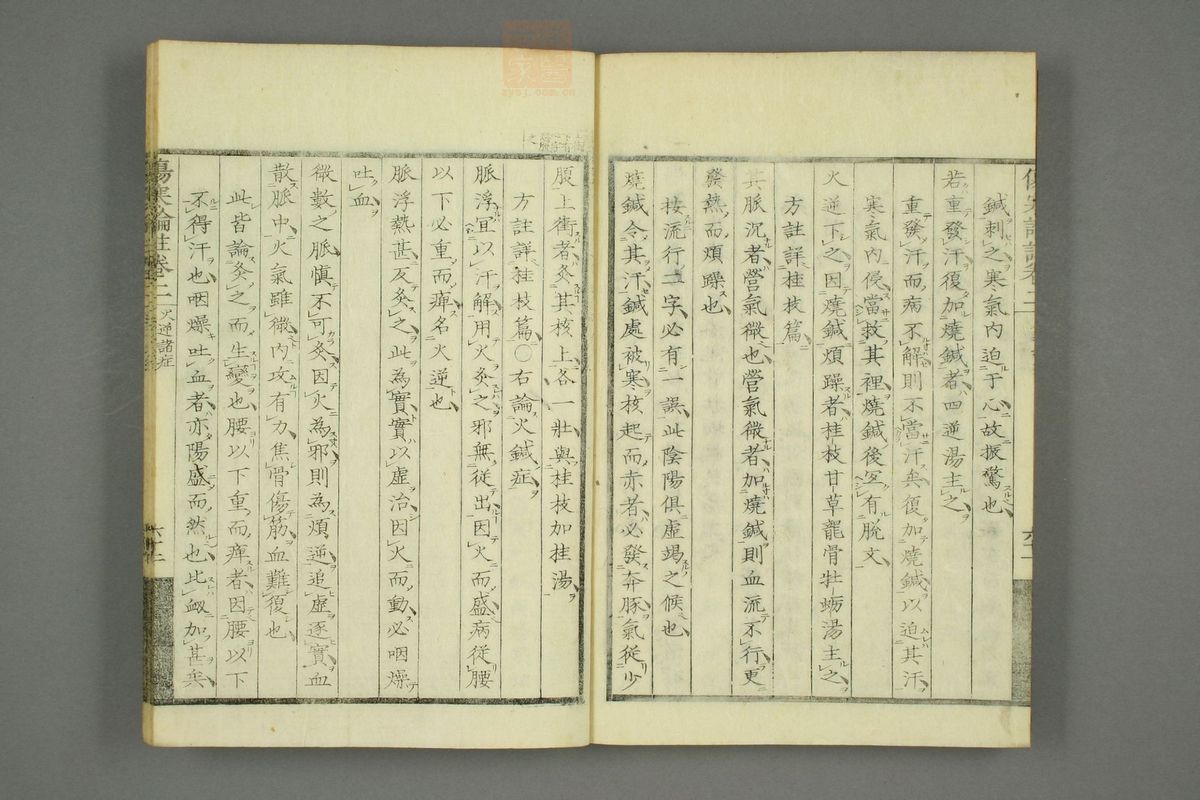 鍼刺之寒氣內迫于心故振驚也
若重發汗復加燒鍼者四逆湯主之
重發汗而病不解則不當汗矣復加燒鍼以迫其汗
寒氣內侵當救其裡燒鍼後宜有脫文
火逆下之因燒鍼煩躁者桂枝甘草龍骨牡蛎湯主之
方註詳桂枝篇
其脈沉者營氣微也營氣微者加燒鍼則血流不行更
發熱而煩躁也
按流行二字必有一誤此陰陽俱虛竭之候也
燒鍼令其汗鍼處被寒核起而赤者必發奔豚氣從少
腹上衝者灸其核上各一壯與桂枝加桂湯
方註詳桂枝篇○右論火鍼症
脈浮宜以汗解用火灸之邪無從出因火而盛病從腰
以下必重而痺名火逆也
脈浮熱甚反灸之此為實實以虛治因火而動必咽燥
吐血
微數之脈慎不可灸因火為邪則為煩逆追虛逐實血
散脈中火氣雖微內攻有力焦骨傷筋血難復也
此皆論灸之而生變也腰以下重而痺者因腰以下
不得汗也咽燥吐血者亦陽盛而然也比衂加甚矣
傷寒論註卷二 火逆諸症 六十二